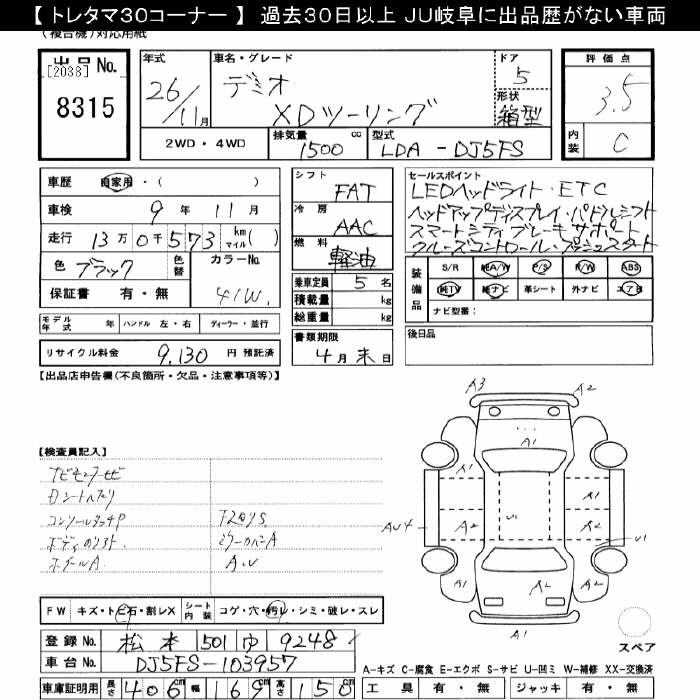 【 トレタマ30コーナー 】 過去30日以上 JU岐阜に出品歴がない車両
(複合機)対応用紙
出品 No.
[2038]
8315
年式
26/11月
車名・グレード
デミオ
XDツーリング
ドア
5
形状
箱型
評価点
3.5
内装
C
2WD・4WD
排気量
1500 cc
型式
LDA - DJ5FS
車歴 自家用・( )
車検 9 年 11 月
走行 13万0千573 km マイル( )
色 ブラック 色替 カラーNo. 41W
保証書 有・無
モデル年式 年 ハンドル 左・右 ディーラー・並行
リサイクル料金 9,130 円 預託済
シフト FAT
冷房 AAC
燃料 軽油
乗車定員 5 名
積載量 kg
総重量 kg
書類期限
4月末日
セールスポイント
LEDヘッドライト・ETC
ヘッドアップディスプレイ・パドルシフト
スマートシティブレーキサポート
クルーズコントロール・プッシュスタート
装備品 S/R 純A/W P/S P/W ABS
純TV 純ナビ 革シート 外ナビ エアB
ナビ型番:
後日品
【出品店申告欄(不良箇所・欠品・注意事項等)】
【検査員記入】
ホイールA
A.U
FW キズ・ト・ビ石・割レX シート内装 コゲ・穴・汚レ・シミ・破レ・スレ
登録 No. 松本 501 ゆ 9248
車台 No. DJ5FS-103957
車庫証明用 長さ 406cm 幅 169cm 高さ 150cm
A3
A2
A1
A1
A1
A2
A2
AU4
U1
U1
A1
A2
A2
A1
A1
スペア
A-キズ C-腐食 E-エクボ S-サビ U-凹ミ W-補修 XX-交換済
工具 有・無 ジャッキ 有・無